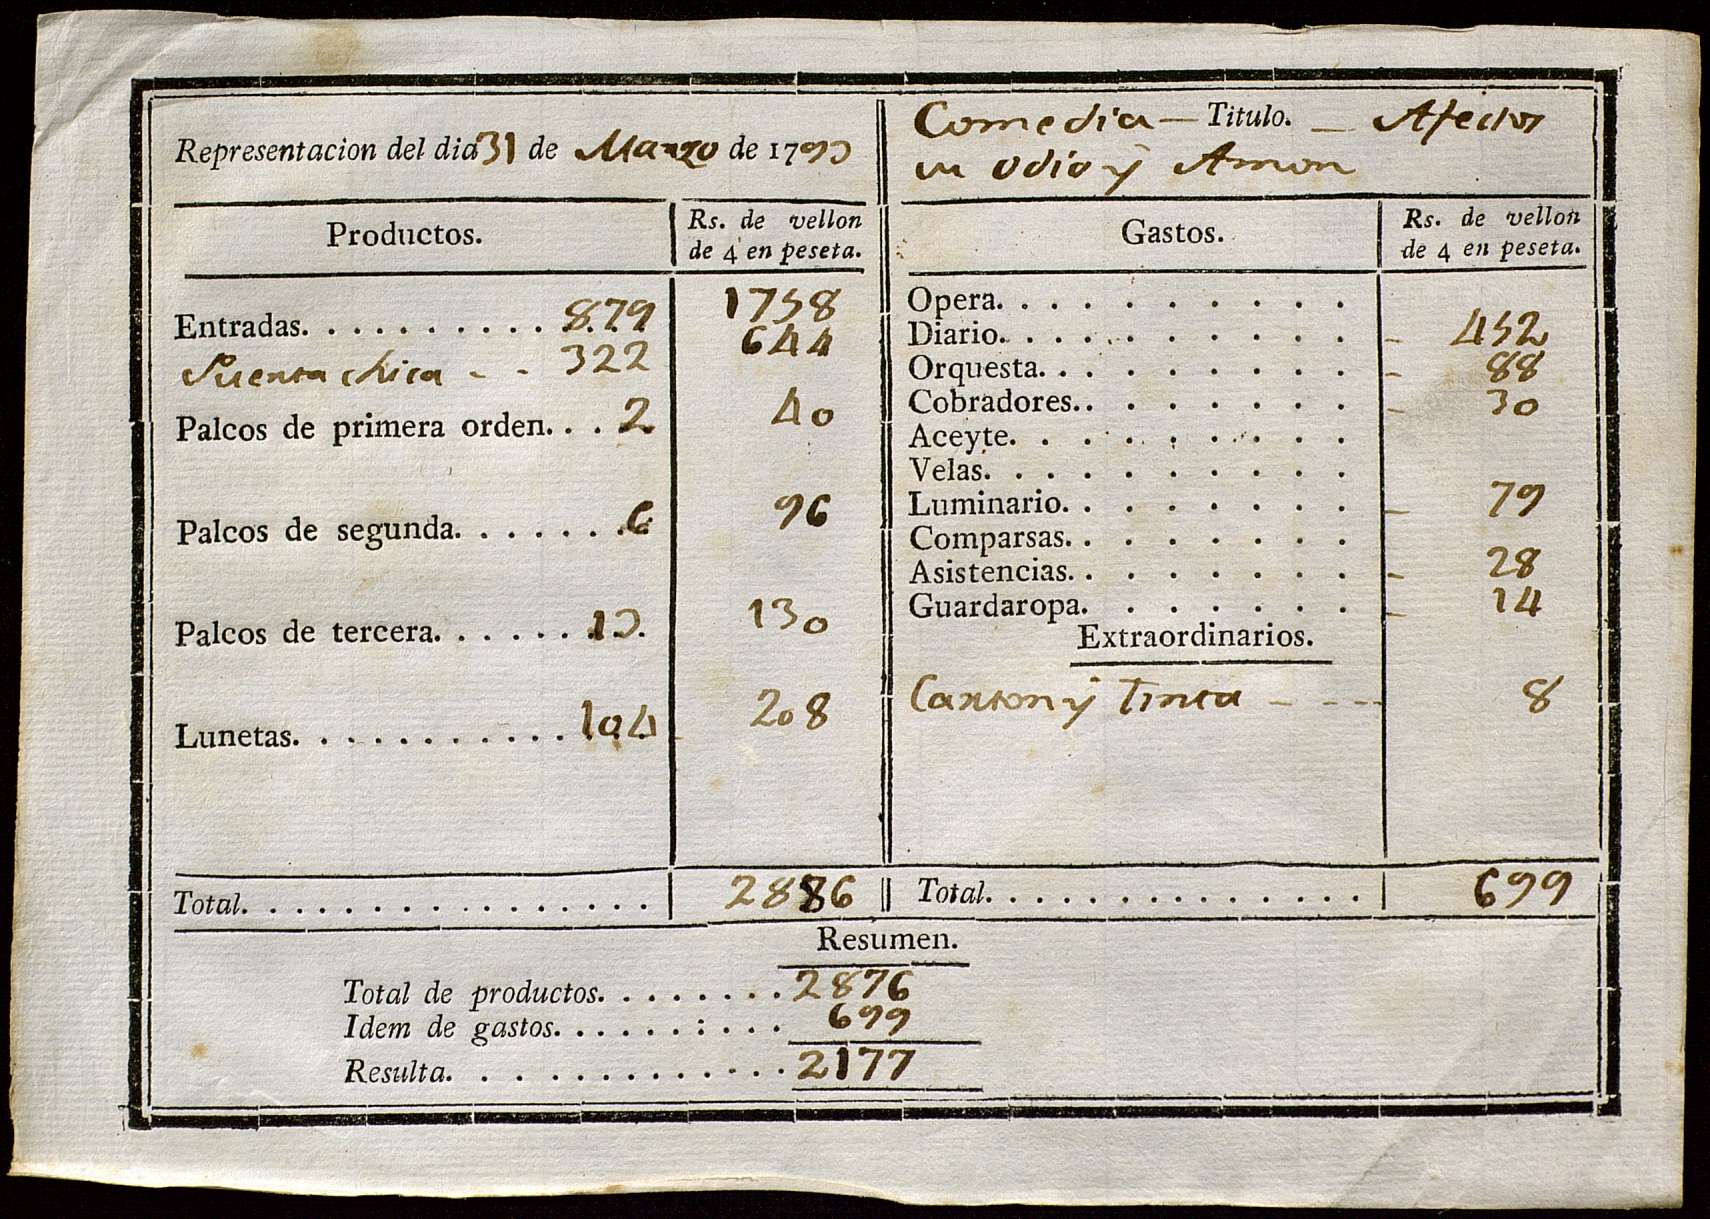 Representacion del dia 31 de Marzo de 1793
Comedia — Titulo. — Afectos
de odio y Amor
Productos.
Rs. de vellon
de 4 en peseta.
Entradas. . . . . . . . . . 879 1758
Puerta chica - - 322 644
Palcos de primera orden. . . 2 40
Palcos de segunda. . . . . . . 6 96
Palcos de tercera. . . . . . 13. 130
Lunetas. . . . . . . . . . . 104 208
Total. . . . . . . . . . . . . . . . 2886
Gastos.
Rs. de vellon
de 4 en peseta.
Opera. . . . . . . . . .
Diario. . . . . . . . . . - 452
Orquesta. . . . . . . . . - 88
Cobradores. . . . . . . . - 30
Aceyte. . . . . . . . .
Velas. . . . . . . . . .
Luminario. . . . . . . . - 79
Comparsas. . . . . . . .
Asistencias. . . . . . . . - 28
Guardaropa. . . . . . . - 14
Extraordinarios.
Carton y Tinta - - - - 8
Total. . . . . . . . . . . . . . . 699
Resumen.
Total de productos. . . . . . . . 2876
Idem de gastos. . . . . . : . . . 699
Resulta. . . . . . . . . . . . . 2177